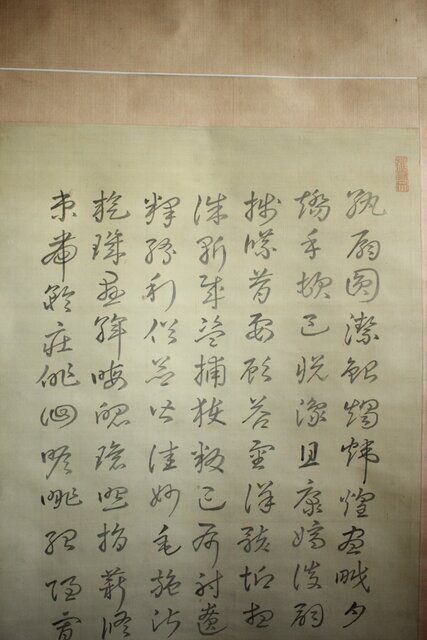 紈扇圓潔銀燭煒煌晝眠夕
矯手頓足悅豫且康嫡後嗣
牋牒簡要顧答審詳骸垢想
誅斬賊盜捕獲叛亡布射遼
釋紛利俗並皆佳妙毛施淑
璇璣懸斡晦魄環照指薪修
束帶矜莊徘徊瞻眺孤陋寡